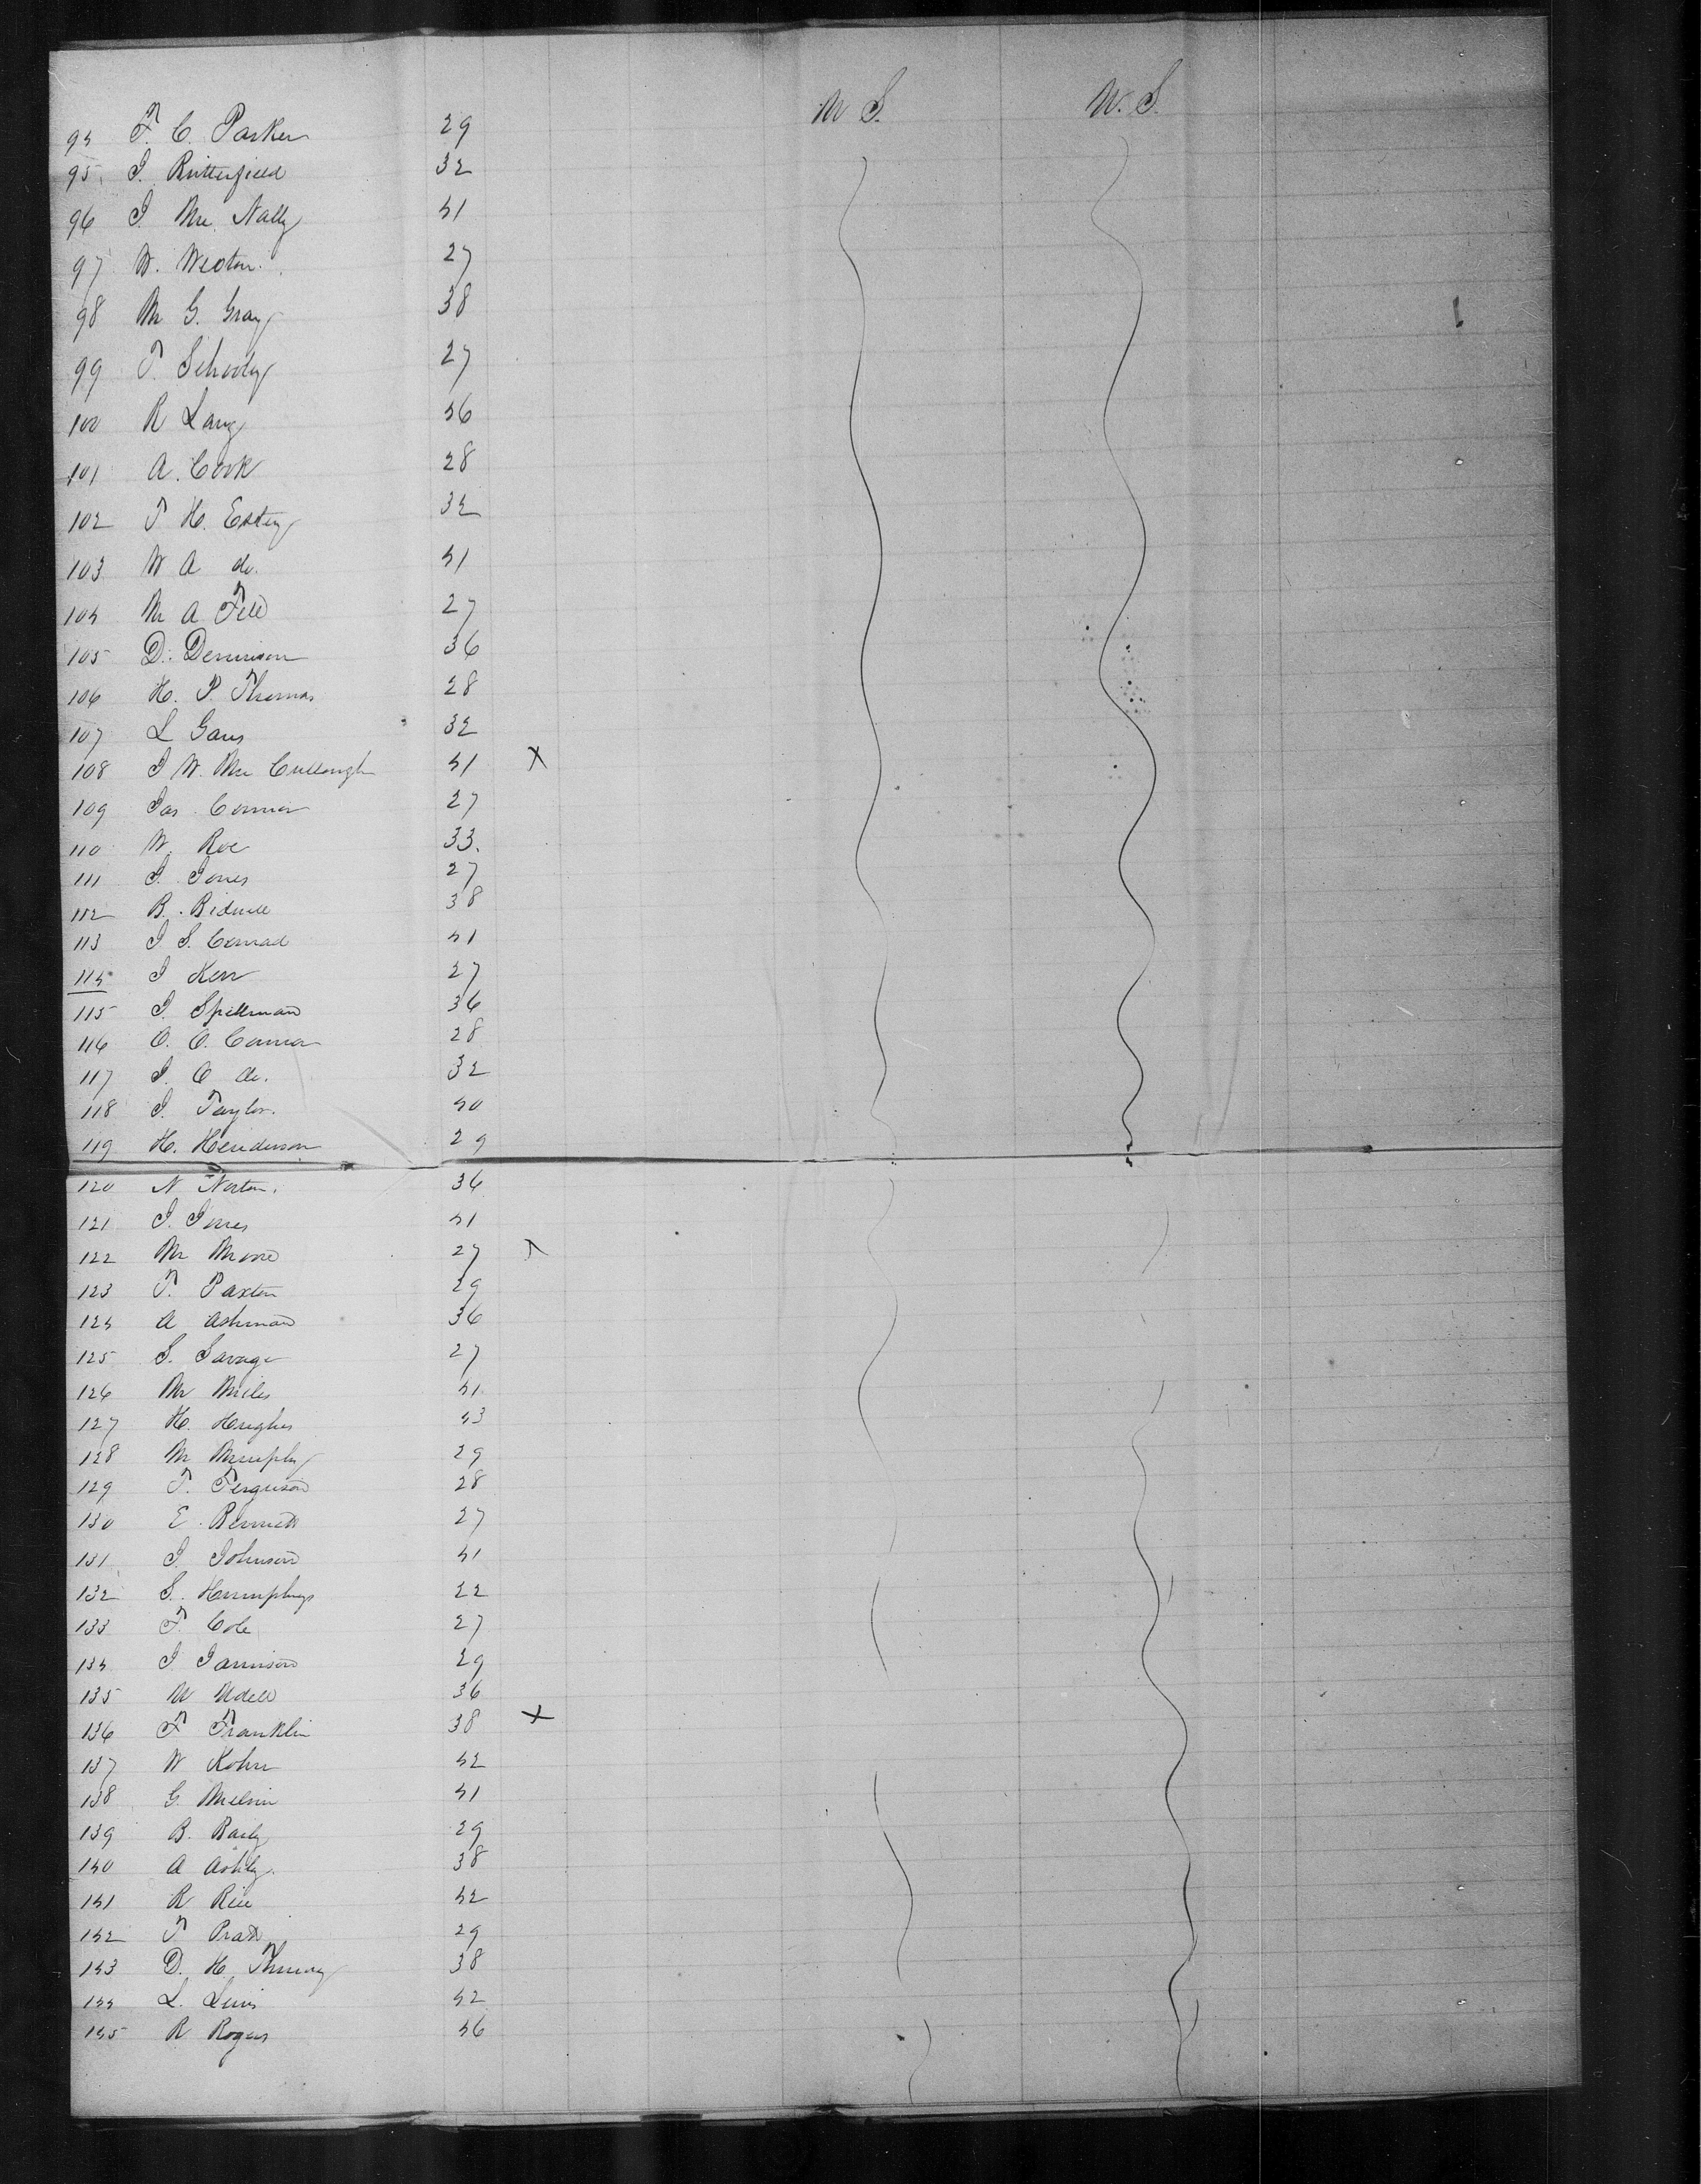 M S. U. S.
94 F. C. Parker 29
95. J. Butterfield 32
96 J. Mc. Nally 41
97 W. Weston. 27
98 M G. Gray 38
99 T. Schooly 27
100 R Lang 46
101 A. Cook 28
102 T H. Estey 32
103 W A do. 41
104 M A Fell 27
105 D. Dennison 36
106 H. P. Thomas 28
107 L Gans 32
108 J W. Mc Cullough 41 X
109 Jas. Connor 27
110 W. Roe 33.
111 J. Jones 27
112 B. Bidwell 38
113 J S. Conrad 41
114 J Kerr 27
115 J. Spillman 36
116 O. O. Connor 28
117 J. O do. 32
118 J. Taylor. 40
119 H. Henderson 29
120 N Norton. 36
121 J. Jones 41
122 M Moore 27
123 T. Paxton 29
124 A Ashman 36
125 S. Savage 27
126 M Miles 41
127 H. Hughes 43
128 M Murphy 29
129 F. Ferguson 28
130 E. Bennett 27
131 J. Johnson 41
132 S. Humphreys 22
133 F. Cole 27
134 J Jamison 29
135 U Udell 36
136 F Franklin 38 X
137 W Kohn 42
138 G. Melvin 41
139 B. Baily 29
140 A Ashly. 38
141 R Rice 42
142 T Pratt 29
143 D. H. 38
144 L. Lewis 42
145 R Rogers 46